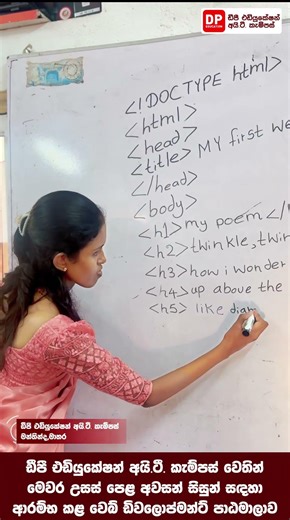 DP
EDUCATION
ඩීපී එඩියුකේෂන්
අයි.ටී. කැම්පස්
<!DOCTYPE html>
<html>
<head>
<title> MY first We
</head>
<body>
<h1> my poem </
<h2> twinkle, twin
<h3> how i wonder
<h4> up above the
<h5> like diam
ඩීපී එඩියුකේෂන් අයි.ටී. කැම්පස්
මත්තින්ද, මාතර
ඩීපී එඩියුකේෂන් අයි.ටී. කැම්පස් වෙතින්
මෙවර උසස් පෙළ අවසන් සිසුන් සඳහා
ආරම්භ කළ වෙබ් ඩිවලොප්මන්ට් පාඨමාලාව